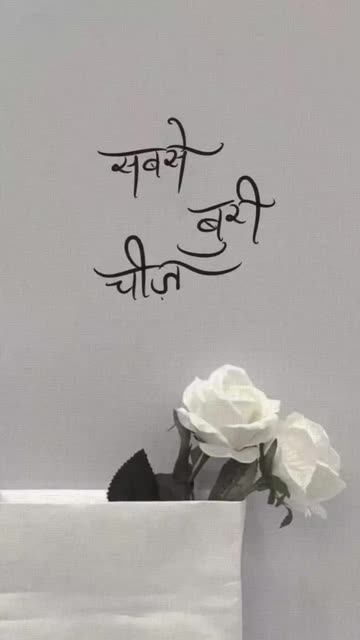 सबसे
बुरी
चीज़